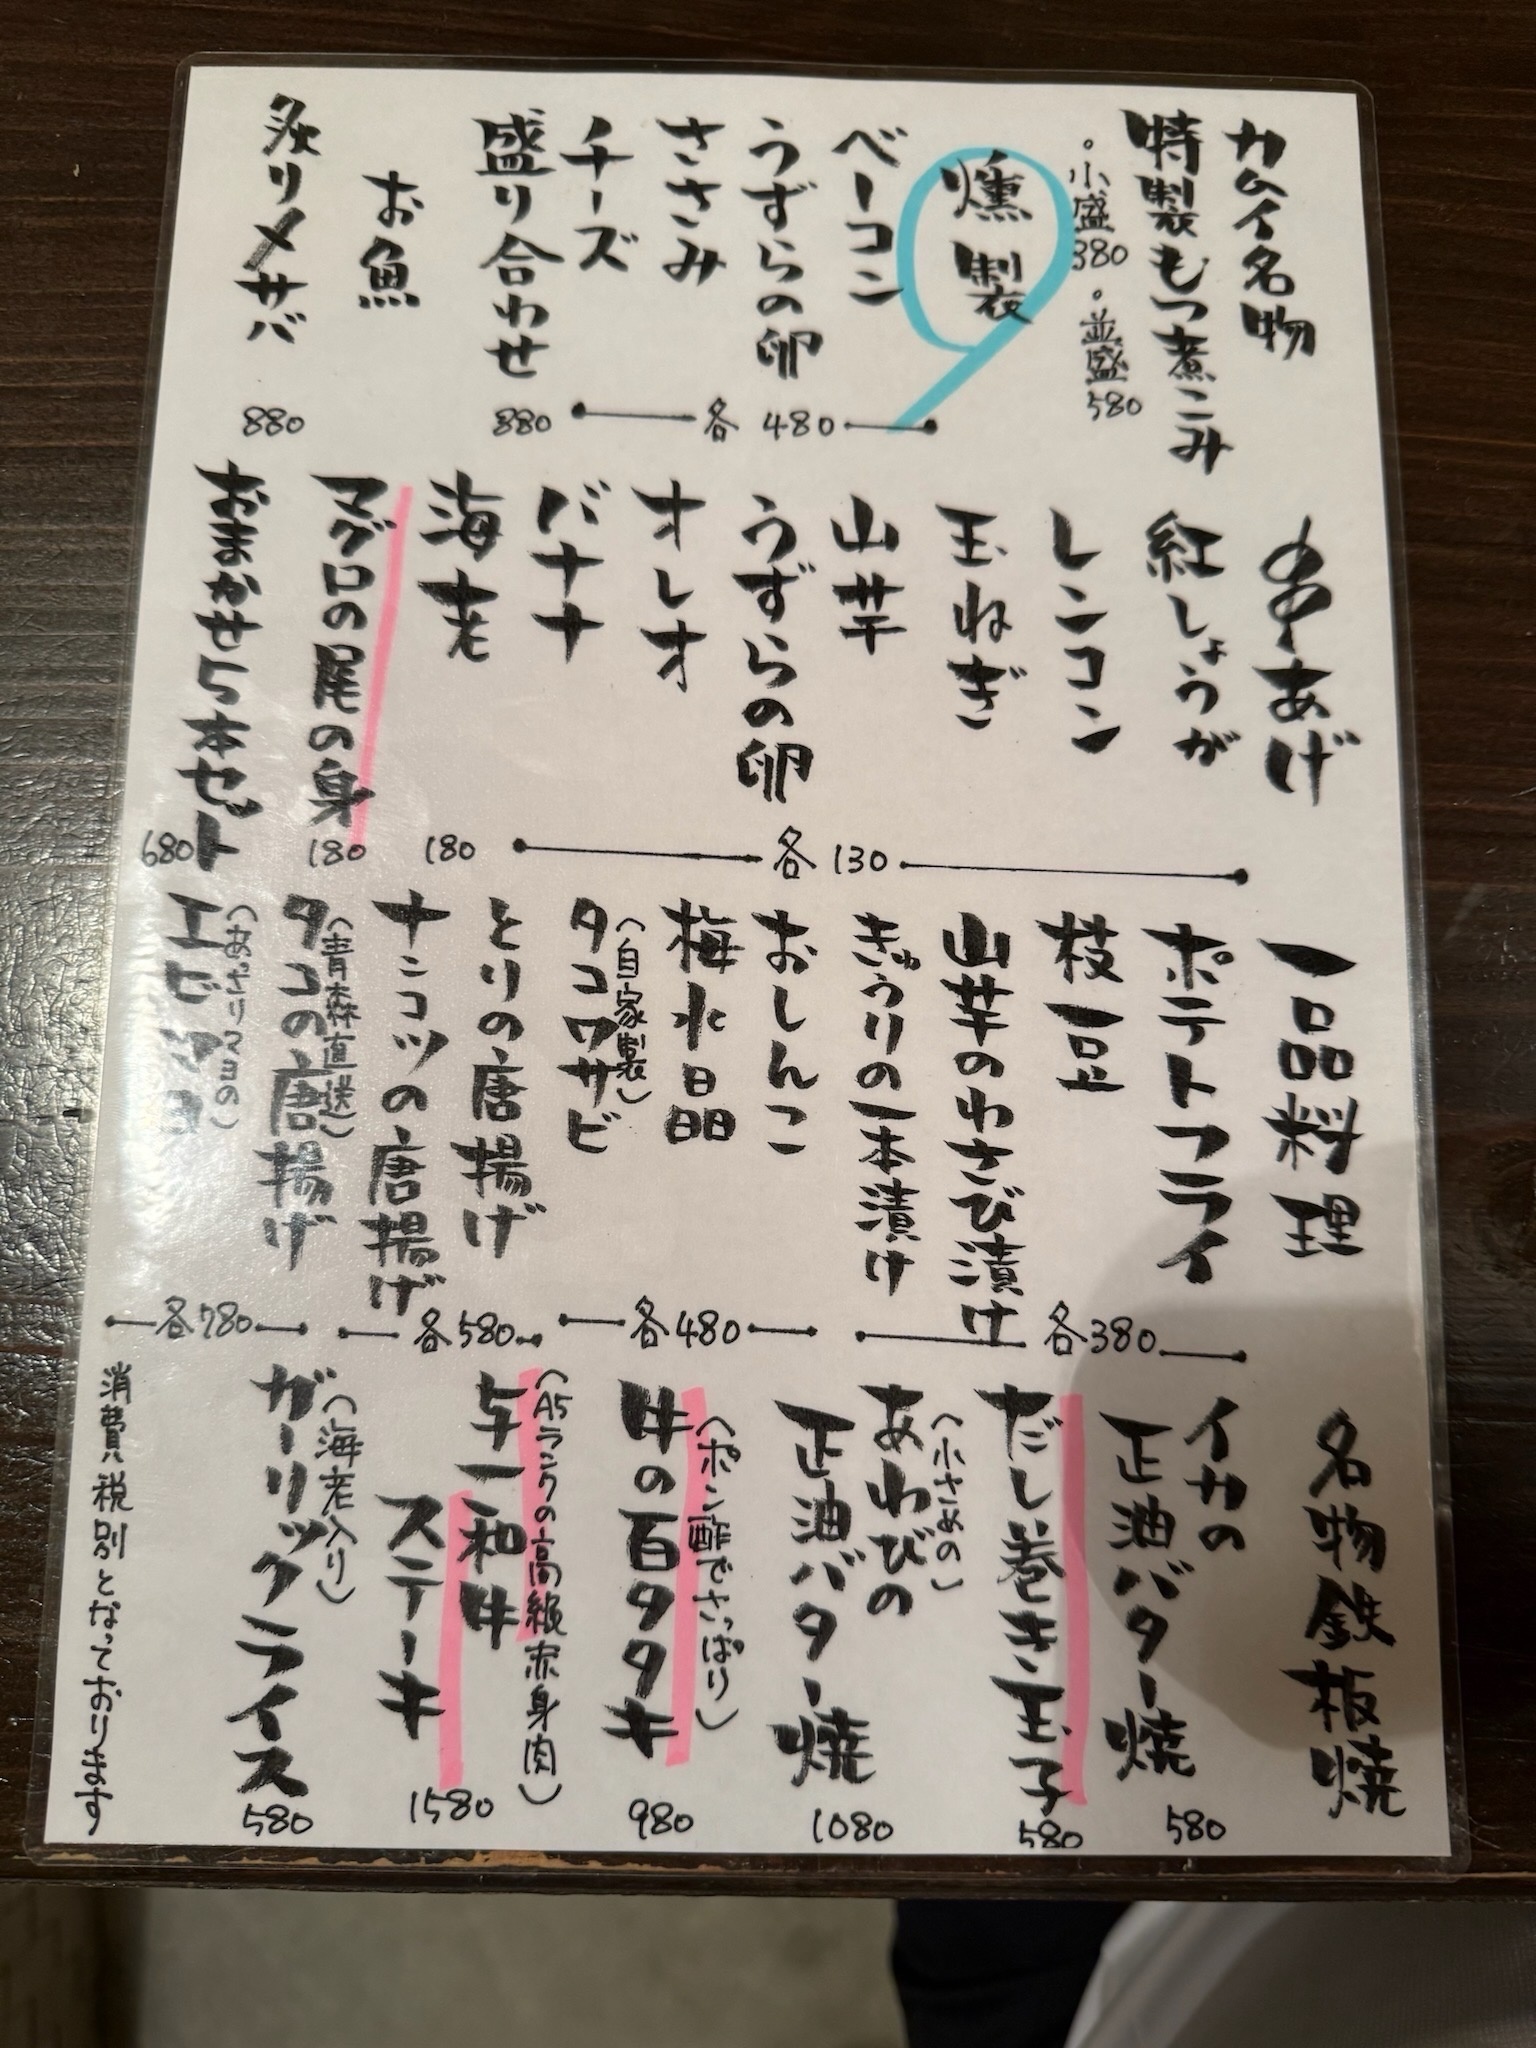 カムイ名物
特製もつ煮こみ
・小盛380 ・並盛580
燻製
ベーコン
うずらの卵
ささみ
チーズ
各480
盛り合わせ
880
お魚
炙りメサバ
880
串あげ
紅しょうが
レンコン
玉ねぎ
山芋
うずらの卵
オレオ
バナナ
各130
海老
180
マグロの尾の身
180
おまかせ5本セット
680
一品料理
ポテトフライ
枝豆
山芋のわさび漬け
きゅうりの一本漬け
各380
おしんこ
梅水晶
(自家製)
タコワサビ
各480
とりの唐揚げ
ナンコツの唐揚げ
各580
(青森直送)
タコの唐揚げ
(あっさりマヨの)
エビマヨ
各780
名物鉄板焼
イカの
正油バター焼
580
だし巻き玉子
580
(小さめの)
あわびの
正油バター焼
1080
(ポン酢でさっぱり)
牛の百タタキ
980
(A5ランクの高級赤身肉)
与一和牛
ステーキ
1580
(海老入り)
ガーリックライス
580
消費税別となっております